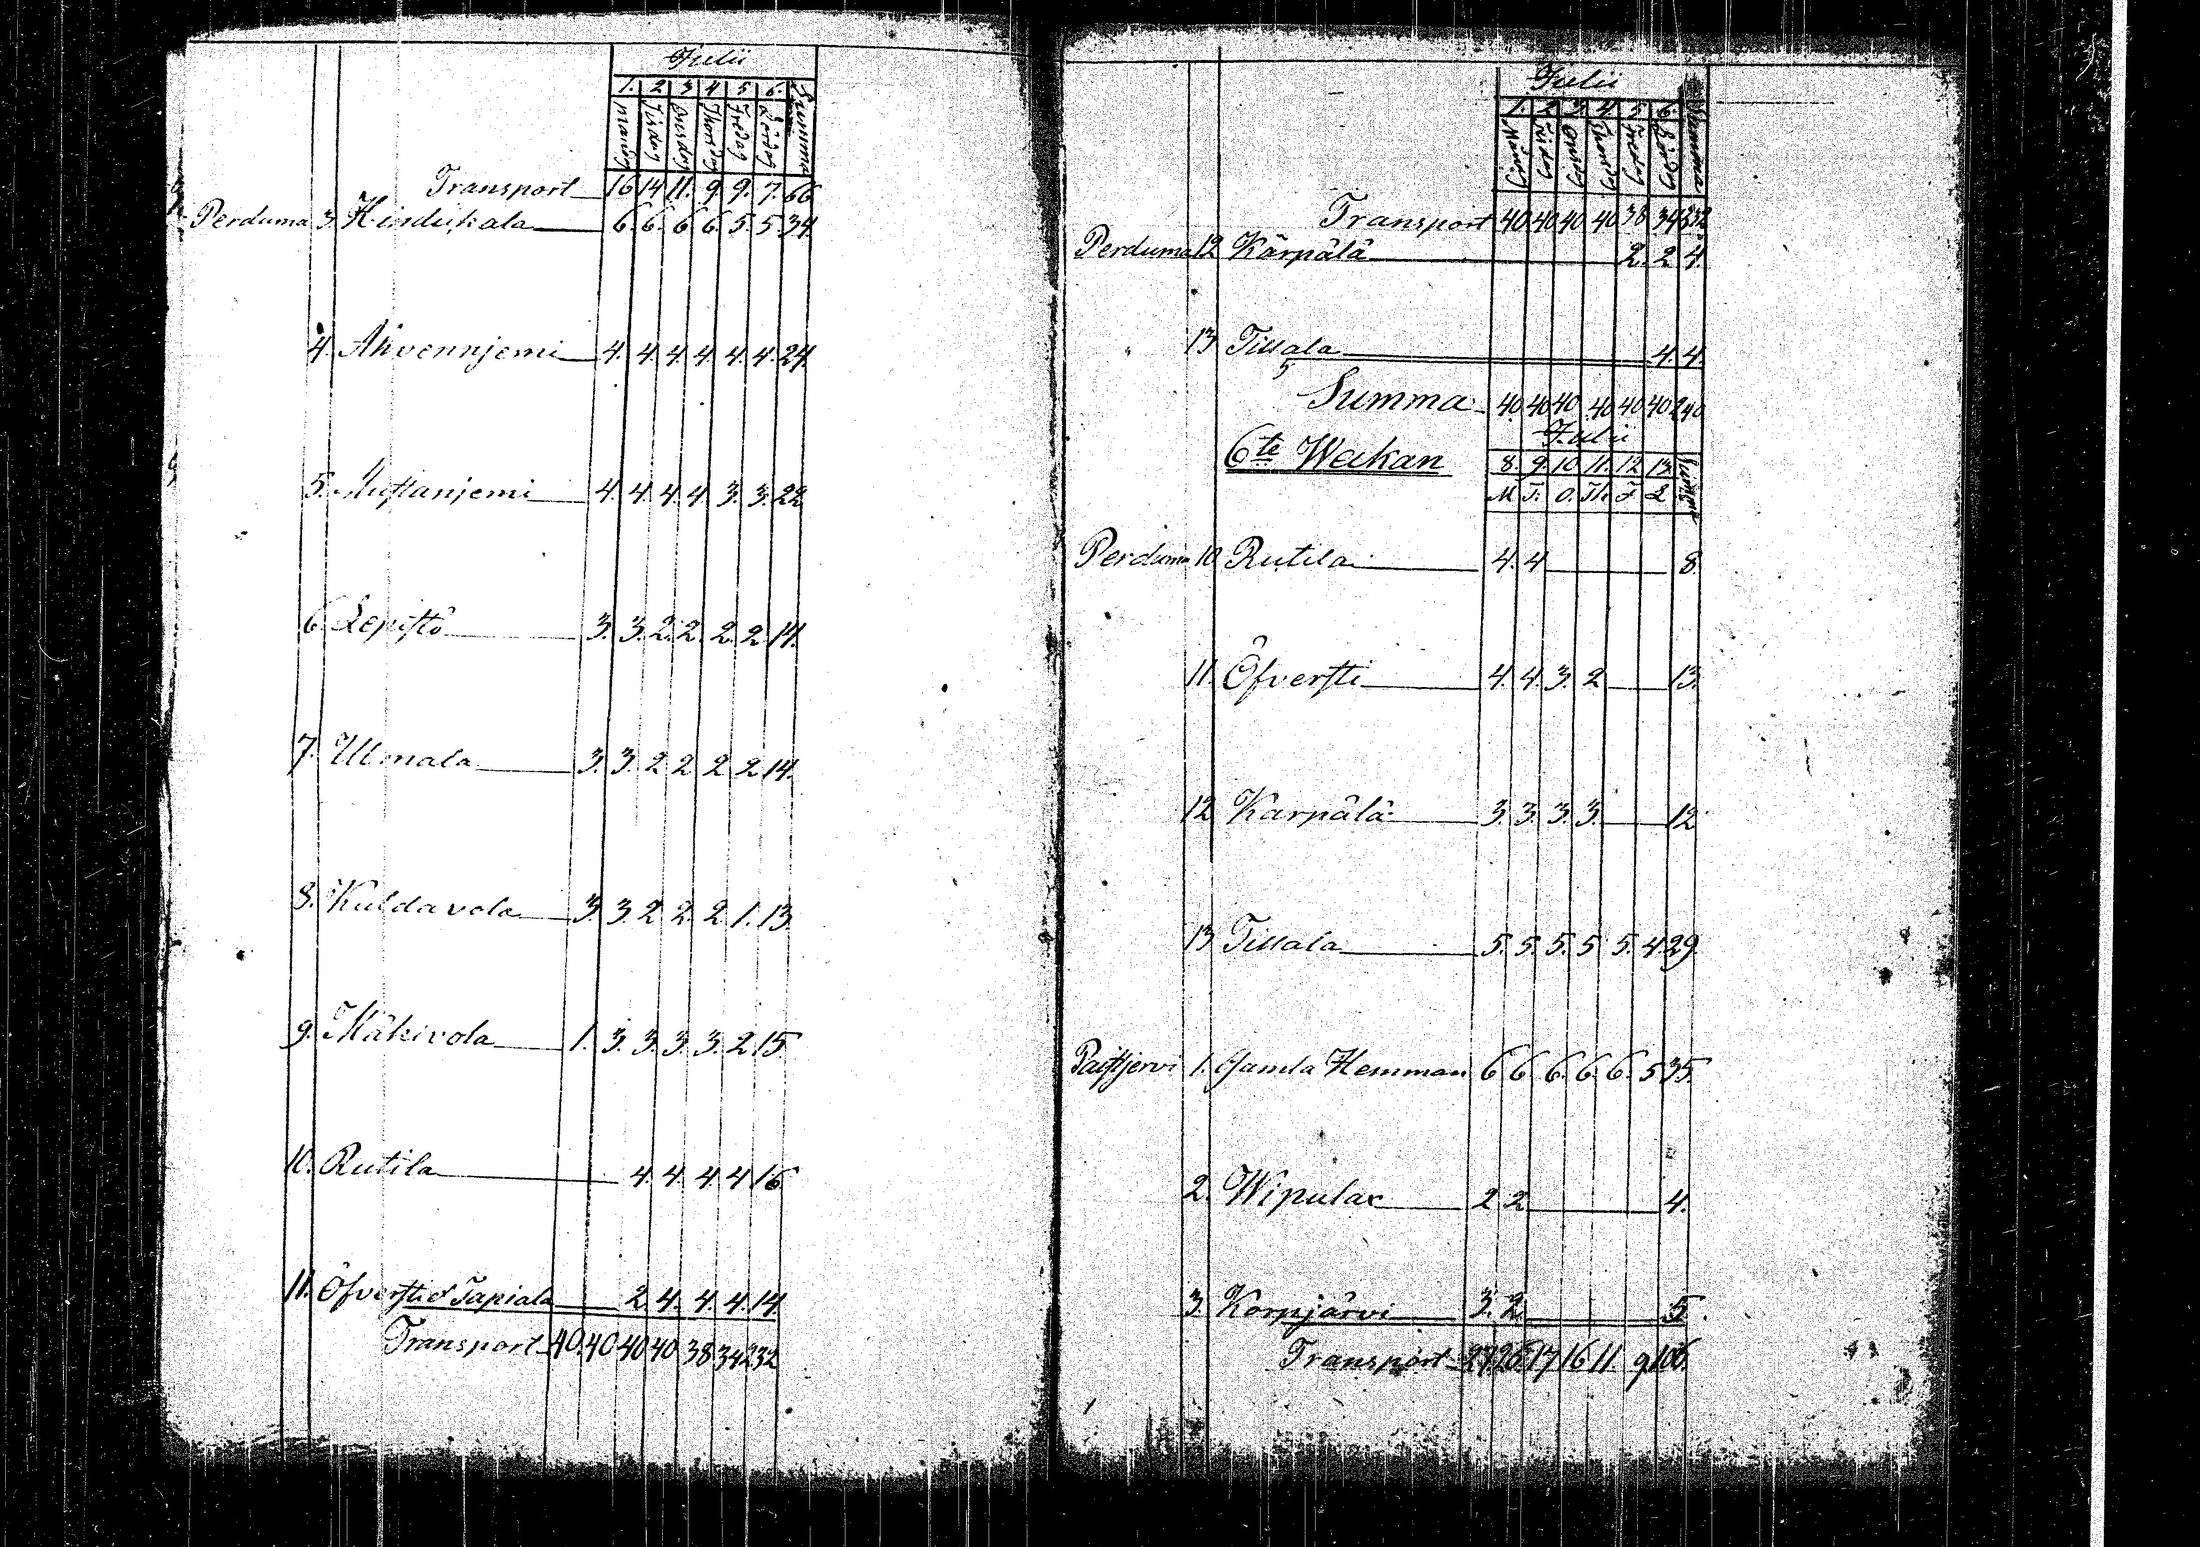 Julii
1. 2 3 4 5 6. Summa
måndag Tisdag Onsdag Thorsdag Fredag Lördag
Transport 16 14 11. 9. 9. 7. 66
Perduma 3 Hindukala 6. 6. 6 6. 5. 5. 34.
4. Ahvennjemi 4. 4. 4. 4 4. 4. 24.
5. Mustanjemi 4. 4. 4. 4 3. 3. 22
6. Lepistö 3. 3. 2. 2. 2. 2. 14.
7. Ulmala 3. 3. 2 2 2 2 14.
8. Kuldavola 3. 3. 2 2. 2 1. 13.
9. Mäkivola 1. 3. 3. 3. 3. 2 15
10. Rutila 4. 4. 4. 4 16
11. Öfversti et Tapiala 2. 4. 4. 4. 14.
Transport 40. 40 40 40 38 34 232
Julii
1. 2. 3. 4. 5. 6. Summa
Transport 40 40 40 40 38 34 232
Perduma 12 Kärpälä 2. 2 4.
13 Tillala 4. 4.
Summa 40. 40 40 40 40 40 240
Julii
6te Weckan 8. 9. 10 11. 12 13 Summa
M T. O. Th F L
Perduma 10 Rutila 4. 4 8.
11. Öfversti 4. 4. 3. 2 13.
12 Karpälä 3. 3. 3. 3. 12
13 Tillala 5. 5. 5. 5 5. 4. 29.
Paistjervi 1. Gamla Hemman 6 6 6. 6. 6. 5 35.
2. Wipulax 2 2 4.
3. Korpjärvi 3. 2. 5.
Transport 27 26 17 16 11. 9 106.